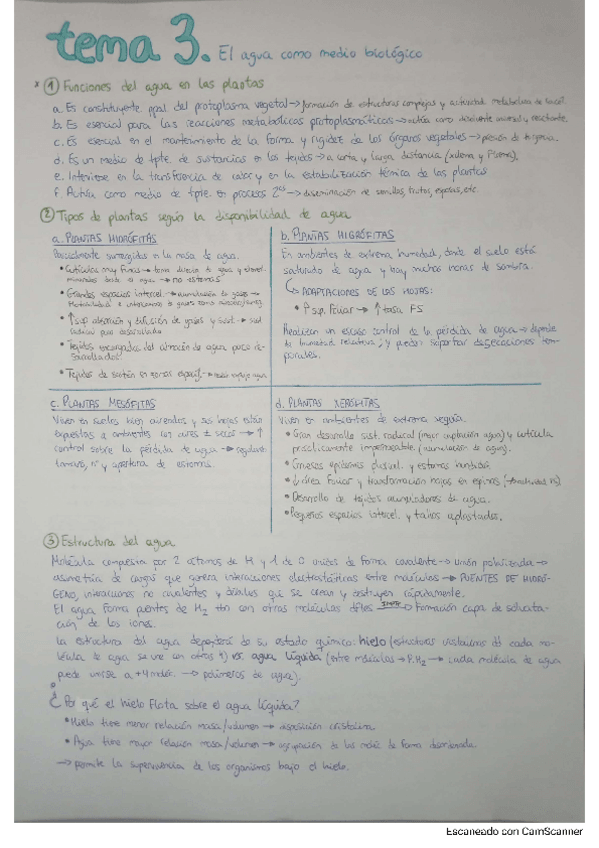 tema 3. El agua como medio biológico
* ① Funciones del agua en las plantas
a. Es constituyente ppal del protoplasma vegetal → formación de estructuras complejas y actividad metabólica
b. Es esencial para las reacciones metabólicas protoplasmáticas → actúa como disolvente universal y reactante.
c. Es esencial en el mantenimiento de la forma y rigidez de los órganos vegetales → presión de turgencia.
d. Es un medio de tpte. de sustancias en los tejidos → a corta y larga distancia (xilema y floema).
e. Interviene en la transferencia de calor y en la estabilización térmica de las plantas
f. Actúa como medio de tpte. en procesos → diseminación de semillas, frutos, esporas, etc.
② Tipos de plantas según la disponibilidad de agua
a. PLANTAS HIDRÓFITAS
Parcialmente sumergidas en la masa de agua.
• Cutícula muy fina → toma directa de agua y
desde el agua → no estomas
• Grandes espacios intercel. → acumulación de gases →
• ↑ sup absorción y difusión de gases y sust. → sist
radical poco desarrollado
• Tejidos encargados del almacén de agua poco desarrollados
• Tejidos de sostén en zonas
b. PLANTAS HIGRÓFITAS
En ambientes de extrema humedad, donde el suelo está
saturado de agua y hay muchas horas de sombra.
↳ ADAPTACIONES DE LAS HOJAS:
• ↑ sp. foliar → ↑ tasa FS
Realizan un escaso control de la pérdida de agua → depende
la humedad relativa; y pueden soportar desecaciones temporales.
c. PLANTAS MESÓFITAS
Viven en suelos bien aireados y sus hojas están
expuestas a ambientes con aires ± secos → ↑
control sobre la pérdida de agua → regulan
tamaño, nº y apertura de estomas.
d. PLANTAS XERÓFITAS
Viven en ambientes de extrema sequía.
• Gran desarrollo sist. radical (mejor captación agua) y cutícula
prácticamente impermeable. (acumulación de agua).
• Gruesas epidermis pluriel. y estomas hundidos.
• ↓ área foliar y transformación hojas en espinas
• Desarrollo de tejidos acumuladores de agua.
• Pequeños espacios intercel. y tallos aplastados.
③ Estructura del agua
Molécula compuesta por 2 átomos de H y 1 de O unidos de forma covalente → unión polarizada →
asimetría de cargas que genera interacciones electrostáticas entre moléculas → PUENTES DE HIDRÓ-
GENO, interacciones no covalentes y débiles que se crean y destruyen rápidamente.
El agua forma puentes de H₂ tbn con otras moléculas → Formación capa de solvata-
ción de los iones.
La estructura del agua dependerá de su estado químico: hielo (estructuras cristalinas cada mo-
lécula de agua se une con otras 4) vs. agua líquida (entre moléculas → P.H₂ → cada molécula de agua
puede unirse a +4 moléc. → polímeros de agua).
¿Por qué el hielo flota sobre el agua líquida?
• Hielo tiene menor relación masa/volumen → disposición cristalina.
• Agua tiene mayor relación masa/volumen → agrupación de las moléc de forma desordenada.
→ permite la supervivencia de los organismos bajo el hielo.
Escaneado con CamScanner